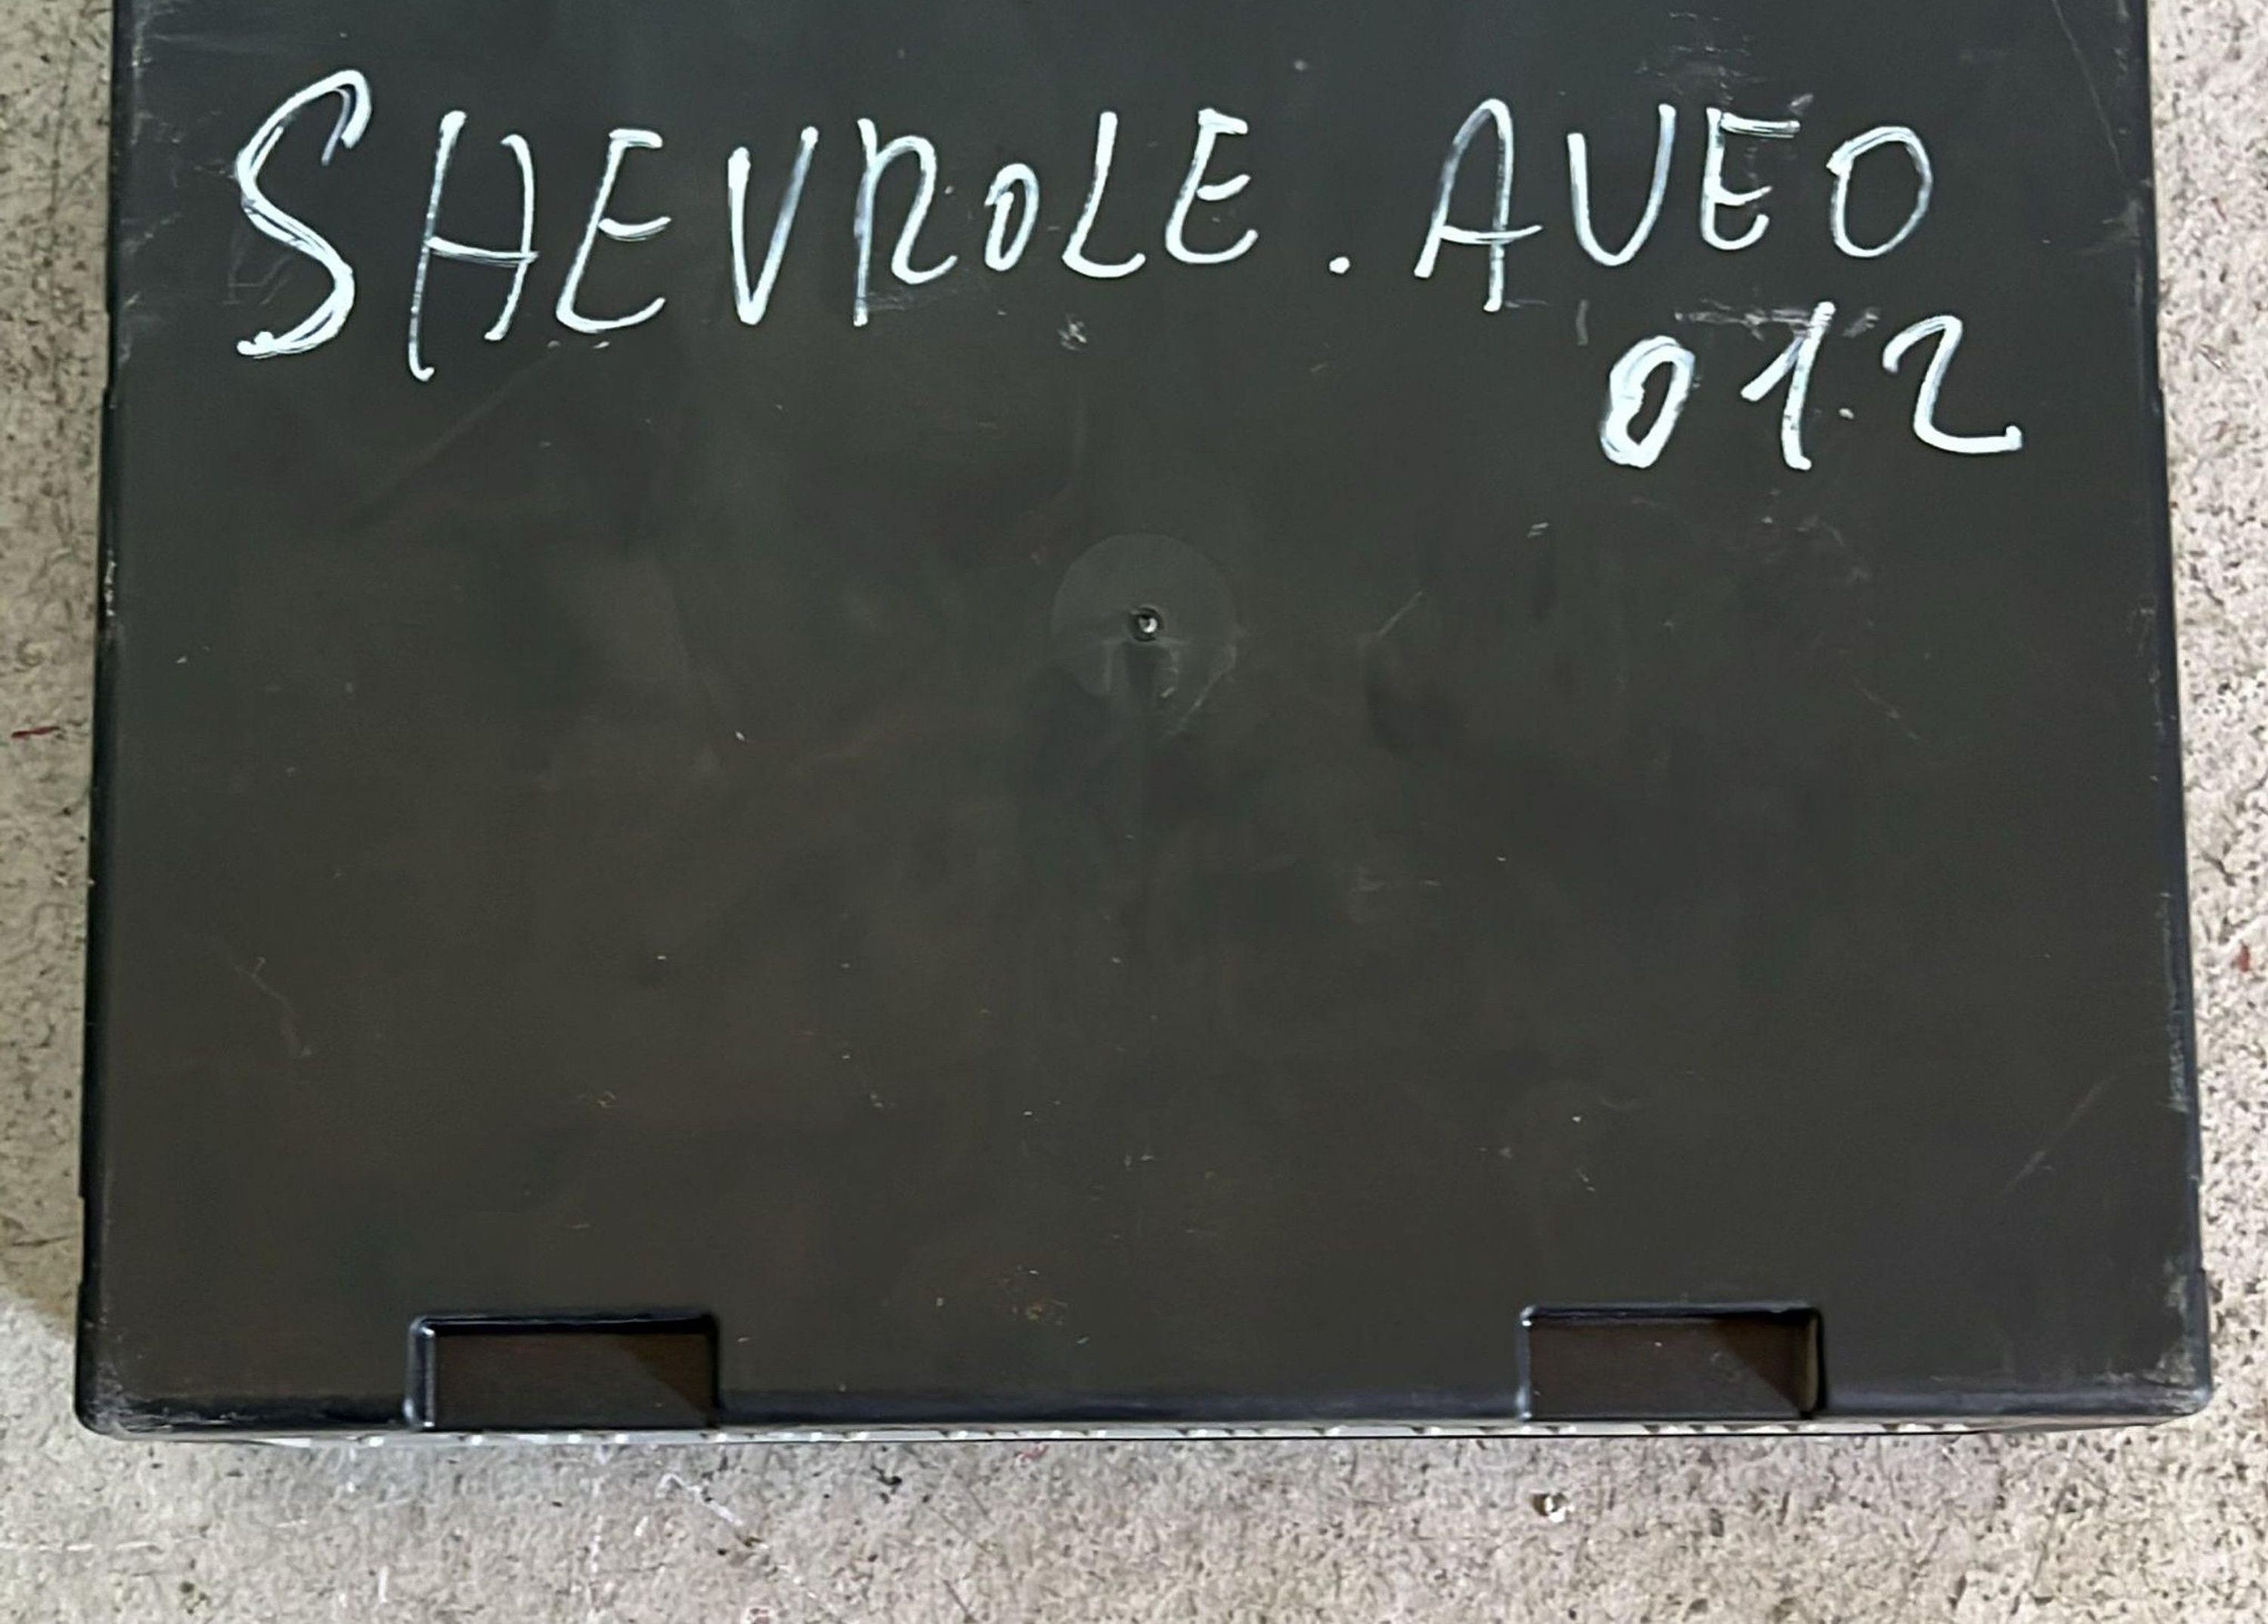 SHEVROLE. AVEO
012